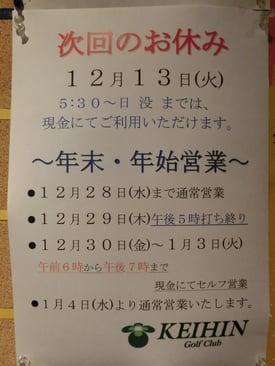 次回のお休み
12月13日(火)
5:30～日 没 までは、
現金にてご利用いただけます。
～年末・年始営業～
●12月28日(水)まで通常営業
●12月29日(木)午後5時打ち終り
●12月30日(金)～1月3日(火)
午前6時から午後7時まで
現金にてセルフ営業
●1月4日(水)より通常営業いたします。
KEIHIN
Golf Club